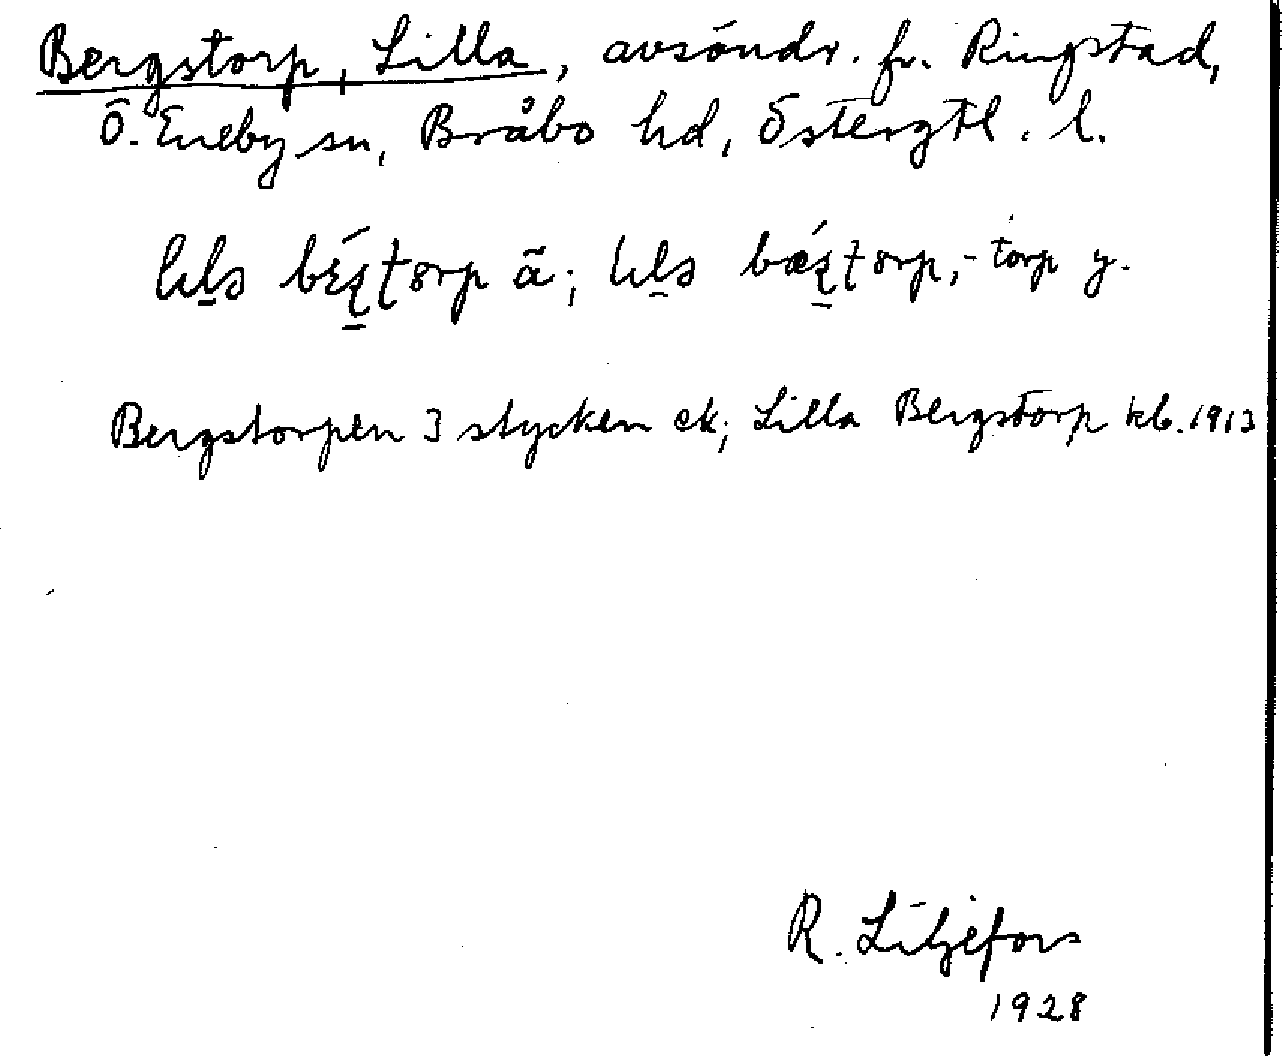 Bergstorp, Lilla, avsöndr. fr. Ringstad,
Ö. Eneby sn, Bråbo hd, Östergtl. l.
ä; -torp y.
Bergstorpen 3 stycken ek; Lilla Bergstorp kb. 1913
R. Liljefors
1928